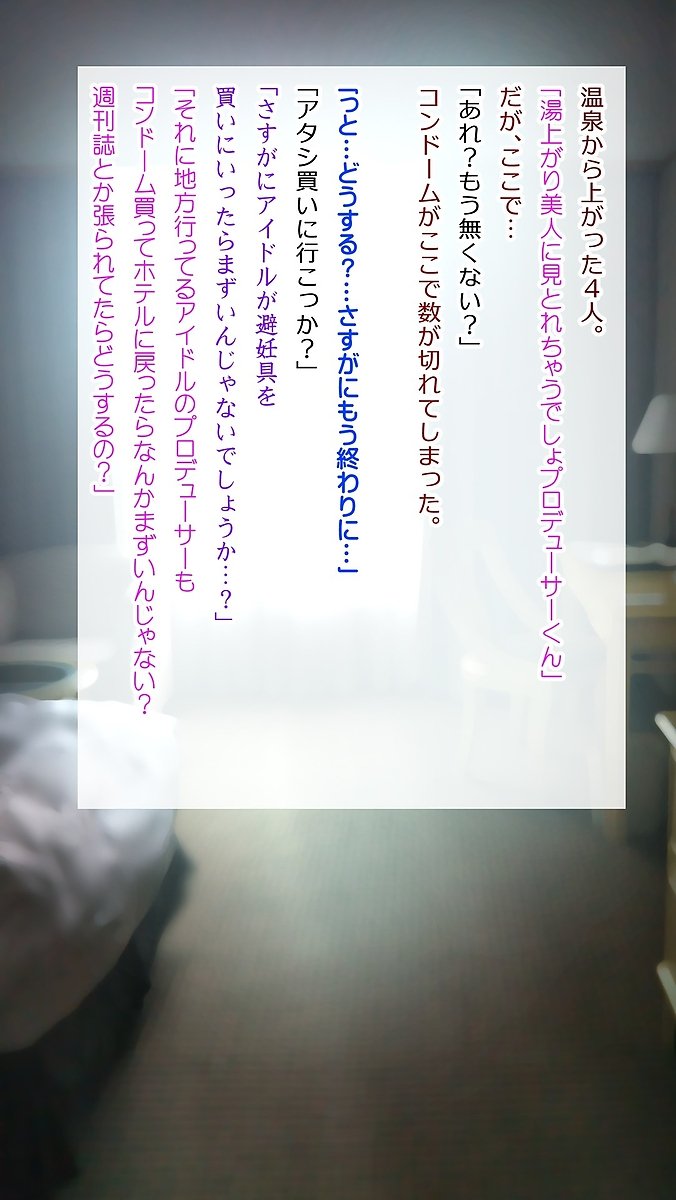 温泉から上がった４人。
「湯上がり美人に見とれちゃうでしょプロデューサーくん」
だが、ここで…
「あれ？もう無くない？」
コンドームがここで数が切れてしまった。
「っと…どうする？…さすがにもう終わりに…」
「アタシ買いに行こっか？」
「さすがにアイドルが避妊具を
買いにいったらまずいんじゃないでしょうか…？」
「それに地方行ってるアイドルのプロデューサーも
コンドーム買ってホテルに戻ったらなんかまずいんじゃない？
週刊誌とか張られてたらどうするの？」